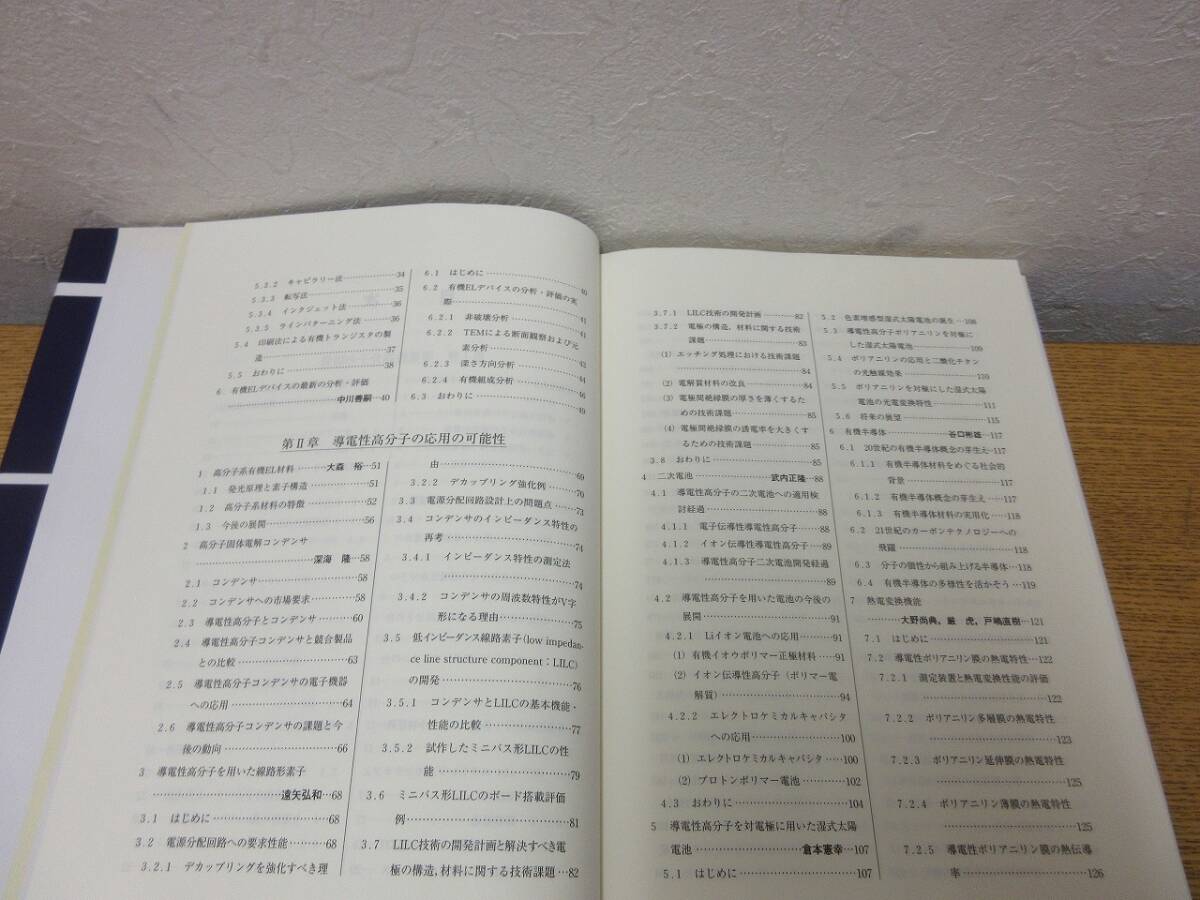 5.3.2 キャピラリー法……34
5.3.3 転写法……35
5.3.4 インクジェット法……36
5.3.5 ラインパターニング法……36
5.4 印刷法による有機トランジスタの製
造……37
5.5 おわりに……38
6. 有機ELデバイスの最新の分析・評価
……中川善嗣…40
6.1 はじめに……40
6.2 有機ELデバイスの分析・評価の実
際……41
6.2.1 非破壊分析……41
6.2.2 TEMによる断面観察および元
素分析……44
6.2.3 深さ方向分析……44
6.2.4 有機組成分析……46
6.3 おわりに……49
第Ⅱ章 導電性高分子の応用の可能性
1 高分子系有機EL材料……大森 裕…51
1.1 発光原理と素子構造……51
1.2 高分子系材料の特徴……52
1.3 今後の展開……56
2 高分子固体電解コンデンサ
……深海 隆…58
2.1 コンデンサ……58
2.2 コンデンサへの市場要求……58
2.3 導電性高分子とコンデンサ……60
2.4 導電性高分子コンデンサと競合製品
との比較……63
2.5 導電性高分子コンデンサの電子機器
への応用……64
2.6 導電性高分子コンデンサの課題と今
後の動向……66
3 導電性高分子を用いた線路形素子
……遠矢弘和…68
3.1 はじめに……68
3.2 電源分配回路への要求性能……68
3.2.1 デカップリングを強化すべき理
由……69
3.2.2 デカップリング強化例……70
3.3 電源分配回路設計上の問題点……73
3.4 コンデンサのインピーダンス特性の
再考……74
3.4.1 インピーダンス特性の測定法
……74
3.4.2 コンデンサの周波数特性がV字
形になる理由……75
3.5 低インピーダンス線路素子(low impedan-
ce line structure component:LILC)
の開発……76
3.5.1 コンデンサとLILCの基本機能・
性能の比較……77
3.5.2 試作したミニバス形LILCの性
能……79
3.6 ミニバス形LILCのボード搭載評価
例……81
3.7 LILC技術の開発計画と解決すべき電
極の構造,材料に関する技術課題…82
3.7.1 LILC技術の開発計画……82
3.7.2 電極の構造,材料に関する技術
課題……83
(1) エッチング処理における技術課題
……84
(2) 電解質材料の改良……84
(3) 電極間絶縁膜の厚さを薄くするた
めの技術課題……85
(4) 電極間絶縁膜の誘電率を大きくす
るための技術課題……85
3.8 おわりに……85
4 二次電池……武内正隆…88
4.1 導電性高分子の二次電池への適用検
討経過……88
4.1.1 電子伝導性導電性高分子……88
4.1.2 イオン伝導性導電性高分子…89
4.1.3 導電性高分子二次電池開発経過
……89
4.2 導電性高分子を用いた電池の今後の
展開……91
4.2.1 Liイオン電池への応用……91
(1) 有機イオウポリマー正極材料…91
(2) イオン伝導性高分子(ポリマー電
解質)……94
4.2.2 エレクトロケミカルキャパシタ
への応用……100
(1) エレクトロケミカルキャパシタ……100
(2) プロトンポリマー電池……102
4.3 おわりに……104
5 導電性高分子を対電極に用いた湿式太陽
電池……倉本憲幸…107
5.1 はじめに……107
5.2 色素増感型湿式太陽電池の誕生…108
5.3 導電性高分子ポリアニリンを対極に
した湿式太陽電池……109
5.4 ポリアニリンの応用と二酸化チタン
の光触媒効果……110
5.5 ポリアニリンを対極にした湿式太陽
電池の光電変換特性……111
5.6 将来の展望……115
6 有機半導体……谷口彬雄…117
6.1 20世紀の有機半導体概念の芽生え…117
6.1.1 有機半導体材料をめぐる社会的
背景……117
6.1.2 有機半導体概念の芽生え……117
6.1.3 有機半導体材料の実用化……118
6.2 21世紀のカーボンテクノロジーへの
飛躍……118
6.3 分子の個性から組み上げる半導体…118
6.4 有機半導体の多様性を活かそう…119
7 熱電変換機能
……大野尚典,厳 虎,戸嶋直樹…121
7.1 はじめに……121
7.2 導電性ポリアニリン膜の熱電特性…122
7.2.1 測定装置と熱電変換性能の評価
……122
7.2.2 ポリアニリン多層膜の熱電特性
……123
7.2.3 ポリアニリン延伸膜の熱電特性
……125
7.2.4 ポリアニリン薄膜の熱電特性
……125
7.2.5 導電性ポリアニリン膜の熱伝導
率……126